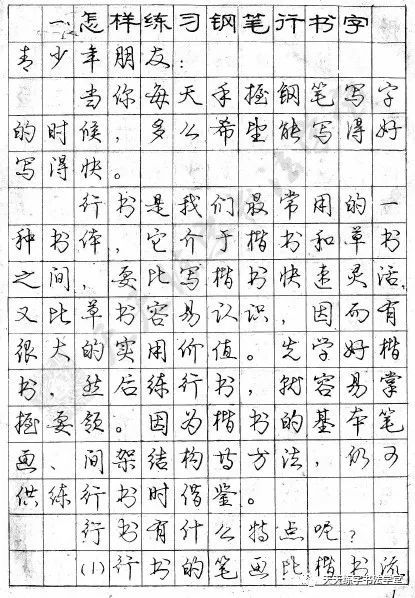 一、怎样练习钢笔行书字
青少年朋友：
当你每天手握钢笔写字
的时候，多么希望能写得好
写得快。
行书是我们最常用的一
种书体，它介于楷书和草书
之间，要比写楷书快速灵活，
又比草书容易认识，因而有
很大的实用价值。先学好楷
书，然后练行书，就容易掌
握要领。因为楷书的基本笔
画、间架结构等方法，仍可
供练行书时借鉴。
行书有什么特点呢？
(1)行书的笔画比楷书流
天天练字书法学堂
1